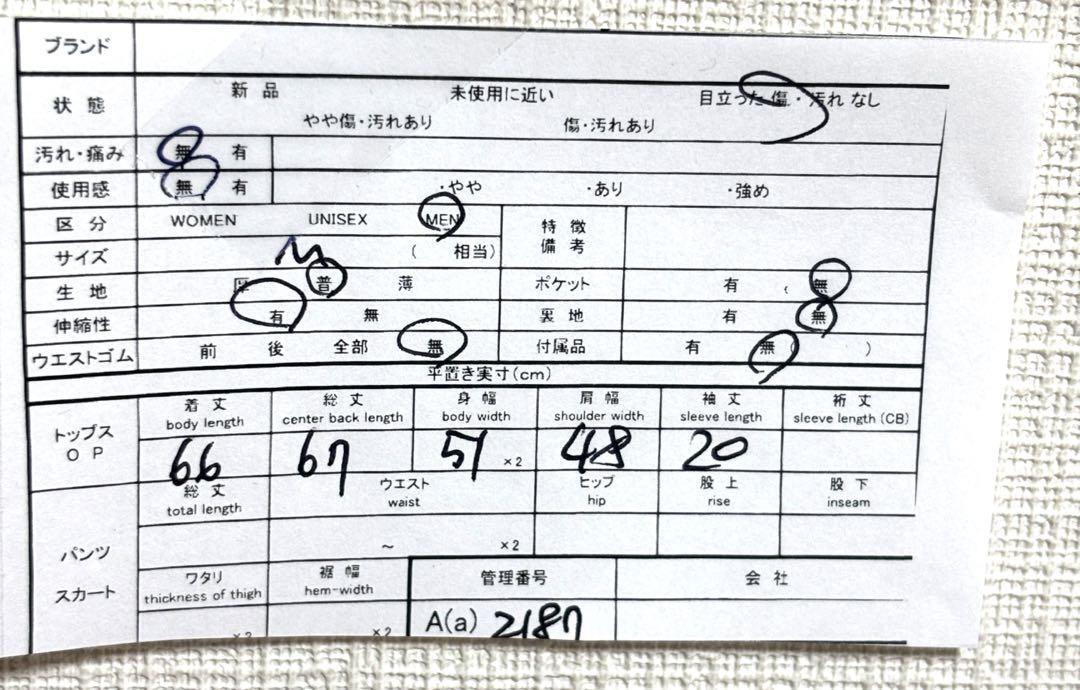 ブランド
状態 新品 未使用に近い 目立った傷・汚れなし
やや傷・汚れあり 傷・汚れあり
汚れ・痛み 無 有
使用感 無 有 ・やや ・あり ・強め
区分 WOMEN UNISEX MEN 特徴備考
サイズ M ( 相当)
生地 厚 普 薄 ポケット 有 ( 無
伸縮性 有 無 裏地 有 無
ウエストゴム 前 後 全部 無 付属品 有 無 ( )
平置き実寸(cm)
トップス OP 着丈 総丈 身幅 肩幅 袖丈 裄丈
body length center back length body width shoulder width sleeve length sleeve length (CB)
66 67 51 ×2 48 20
パンツ スカート 総丈 ウエスト ヒップ 股上 股下
total length waist hip rise inseam
~ ×2
ワタリ 裾幅 管理番号 会社
thickness of thigh hem-width
×2 ×2 A(a) 2187